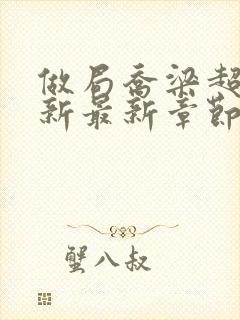 做局乔梁超
新最新章节
蟹八叔